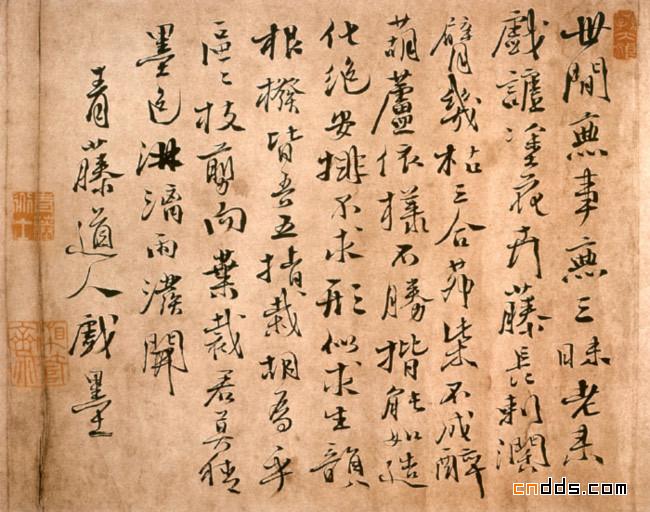 世間無事無三昧老來
戲謔塗花卉藤長刺闊
臂幾枯三合茆柴不成醉
葫蘆依樣不勝揩能如造
化絕安排不求形似求生韻
根撥皆吾五指栽胡為乎
區〻枝剪而葉裁君莫猜
墨色淋漓雨潑開
青藤道人戲墨
cndds.com